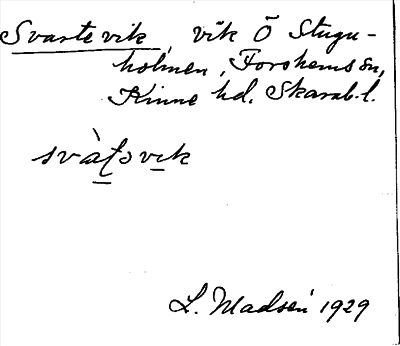 Svarte vik, vik Ö Stugu-
holmen, Forshems sn,
Kinne hd. Skarab. l.
svàtəvik
L. Madsén 1929